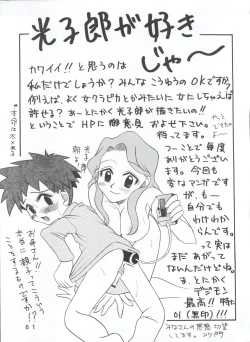 光子郎が好き
じゃ〜
カワイイ!!と思うのは
私だけでしょうか?みんな こうゆうの OKですか?
例えば、よくクラピカとかみたいに 女にしちゃえば
許せる?あーとにかく 光子郎が描きたい!!
ということで HPに 御意見 およせ下さい。
待ってます。
つーことで 毎度
ありがとうござい
ます。今回も
変なマンガです
が、もー
自分でも
わけわか
らんです。
って実は
まだ あがって
ないんだけどね。
ま、とにかく
デジモン
最高!!
01(無印)!!!
お母さん!
本当に親子ってこういう
ものですか!?
61